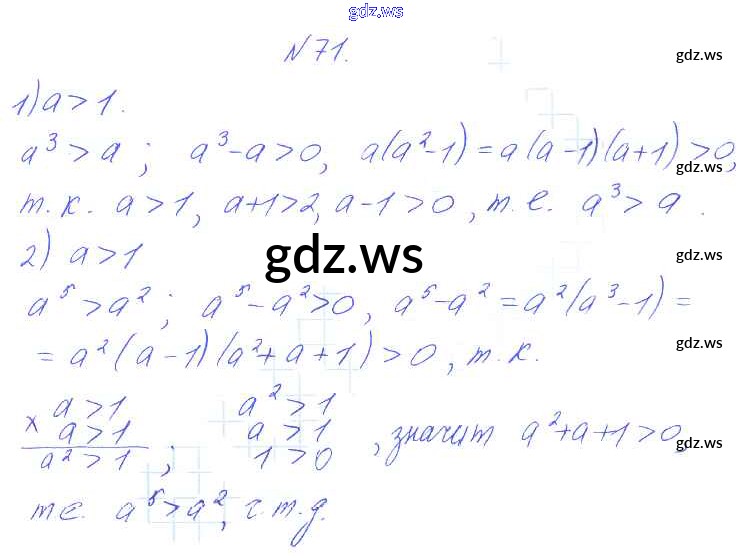 gdz.ws
N 71.
gdz.ws
1) a > 1.
a³ > a ; a³ - a > 0, a(a² - 1) = a(a - 1)(a + 1) > 0,
gdz.ws
т.к. a > 1, a + 1 > 2, a - 1 > 0, т.е. a³ > a.
2) a > 1
gdz.ws
gdz.ws
a⁵ > a² ; a⁵ - a² > 0, a⁵ - a² = a²(a³ - 1) =
= a²(a - 1)(a² + a + 1) > 0, т.к.
gdz.ws
× a > 1 a² > 1
a > 1 a > 1 , значит a² + a + 1 > 0,
a² > 1 ; 1 > 0
gdz.ws
т.е. a⁵ > a², ч.т.д.
gdz.ws